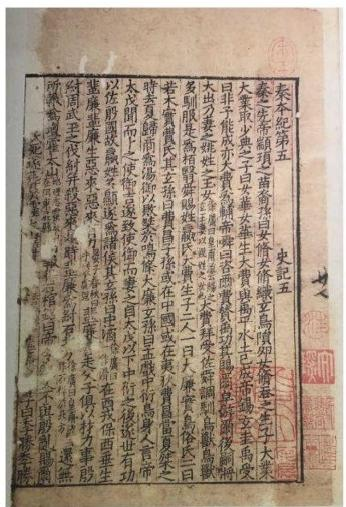 秦本紀第五 史記五
秦之先帝顓頊之苗裔孫曰女脩女脩織玄鳥隕卵女脩吞之生子大業
大業取少典之子曰女華女華生大費與禹平水土已成帝錫玄圭禹受
曰非予能成亦大費爲輔帝舜曰咨爾費贊禹功其賜爾皁游爾後嗣將
大出乃妻之姚姓之玉女大費拜受佐舜調馴鳥獸鳥獸
多馴服是爲栢翳舜賜姓嬴氏大費生子二人一曰大廉實鳥俗氏二曰
若木實費氏其玄孫曰費昌子孫或在中國或在夷狄費昌當夏桀之
時去夏歸商爲湯御以敗桀於鳴條大廉玄孫曰孟戲中衍鳥身人言帝
太戊聞而卜之使御吉遂致使御而妻之自太戊以下中衍之後遂世有功
以佐殷國故嬴姓多顯遂爲諸侯其玄孫曰中潏在西戎保西垂生
蜚廉蜚廉生惡來惡來有力蜚廉善走父子俱以材力事殷
紂周武王之伐紂并殺惡來是時蜚廉爲紂石還無
所報爲壇霍太山曰帝不與殷亂賜爾
死遂子曰季勝季勝